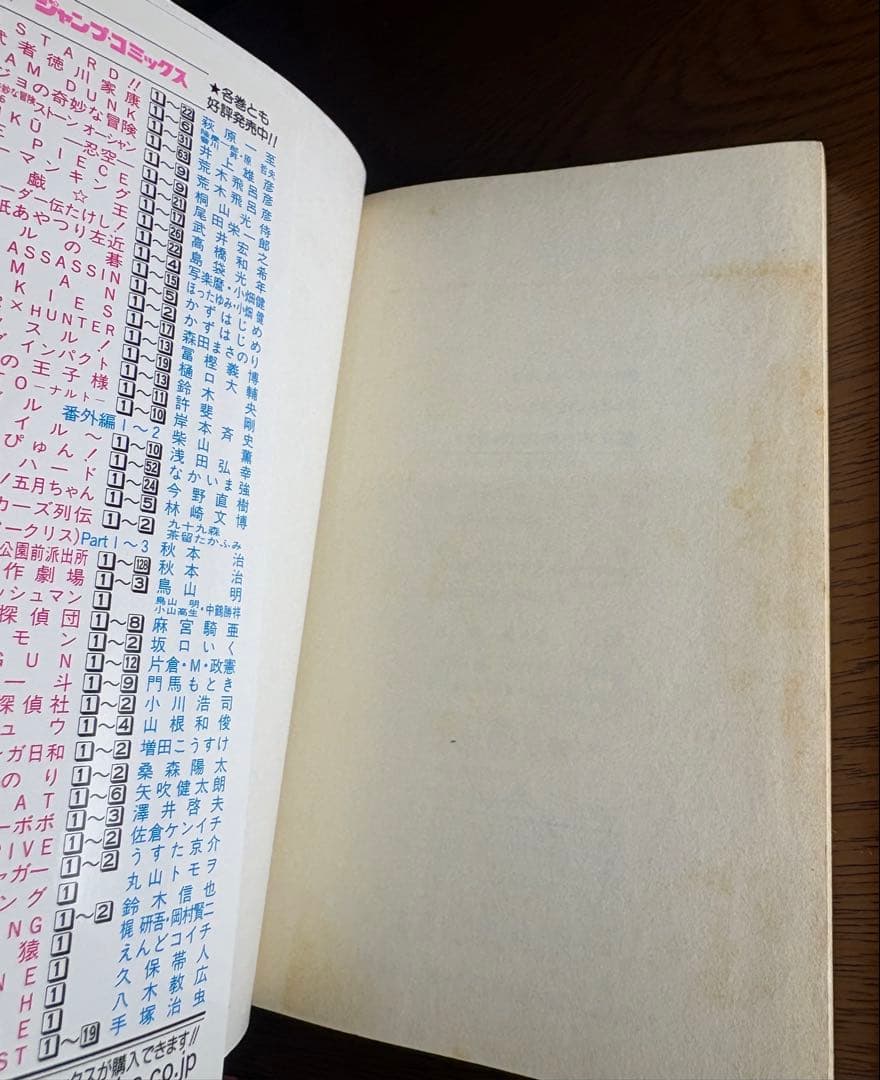 ジャンプ・コミックス
★各巻とも
好評発売中!!
STARD!! 1～22 萩原一至
武者徳川家康 1～6 隆慶一郎・原哲夫
AM DUNK 1～31 井上雄彦
ジョの奇妙な冒険 1～63 荒木飛呂彦
ストーンオーシャン 1～9 荒木飛呂彦
KU ―忍空― 1～9 桐山光侍
E PIECE 1～21 尾田栄一郎
ーマンキング 1～17 武井宏之
戯☆王 1～26 高橋和希
ーダー伝たけし! 1～22 島袋光年
紙あやつり左近 1～4 写楽麿・小畑健
ルの碁 1～15 ほったゆみ・小畑健
ASSASSIN 1～5 かずはじめ
MAN 1～2 かずはじめ
KIES 1～17 森田まさのり
R×HUNTER 1～13 冨樫義博
スル! 1～19 樋口大輔
グインパクト 1～13 鈴木央
の王子様 1～11 許斐剛
TO―ナルト― 1～10 岸本斉史
ル 番外編1～2 柴山薫
イル～ 1～10 浅田弘幸
ぴゅん! 1～52 なかいま強
ハード 1～24 今野直樹
!五月ちゃん 1～5 林崎文博
カーズ列伝 1～2 九十九森 茶留たかふみ
ークリス)Part1～3 秋本治
公園前派出所 1～128 秋本治
作劇場 1～3 鳥山明
ッシュマン 1 鳥山明 小山高生・中鶴勝祥
探偵団 1～8 麻宮騎亜
モン 1～2 坂口いく
GUN 1～12 片倉・M・政憲
一斗 1～9 門馬もとき
探偵社 1～2 小川浩司
ュウ 1～4 山根和俊
ンガ日和 1～2 増田こうすけ
のり 1～2 桑森陽太
AT 1～6 矢吹健太朗
ーボボ 1～3 澤井啓夫
RIVE 1～2 佐倉ケンイチ
ャガー 1～2 うすた京介
ング 1 丸山トモヲ
NG 1～2 鈴木信也
猿 1 梶研吾・岡村賢二
NE 1 えんどコイチ
H 1 久保帯人
E 1 八木教広
ST 1～19 手塚治虫
クスが購入できます!!
.co.jp